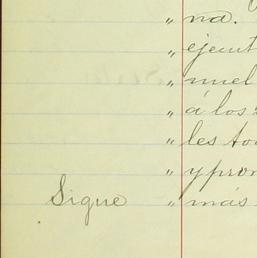 " na.
" ejecut
" nuel
" á los
" les to
" y pron
Sigue " más